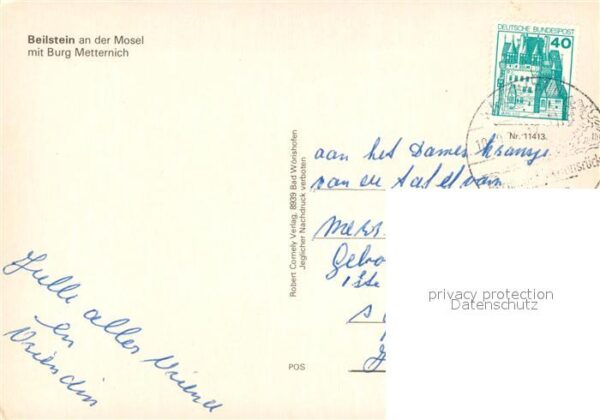 Beilstein an der Mosel
mit Burg Metternich
DEUTSCHE BUNDESPOST
40
Nr. 11413
Robert Cornely Verlag, 8939 Bad Wörishofen
Jeglicher Nachdruck verboten
aan het Dames kransje
van de tafel van
privacy protection
Datenschutz
Jullie aller Vriend
en
Vriendin
POS